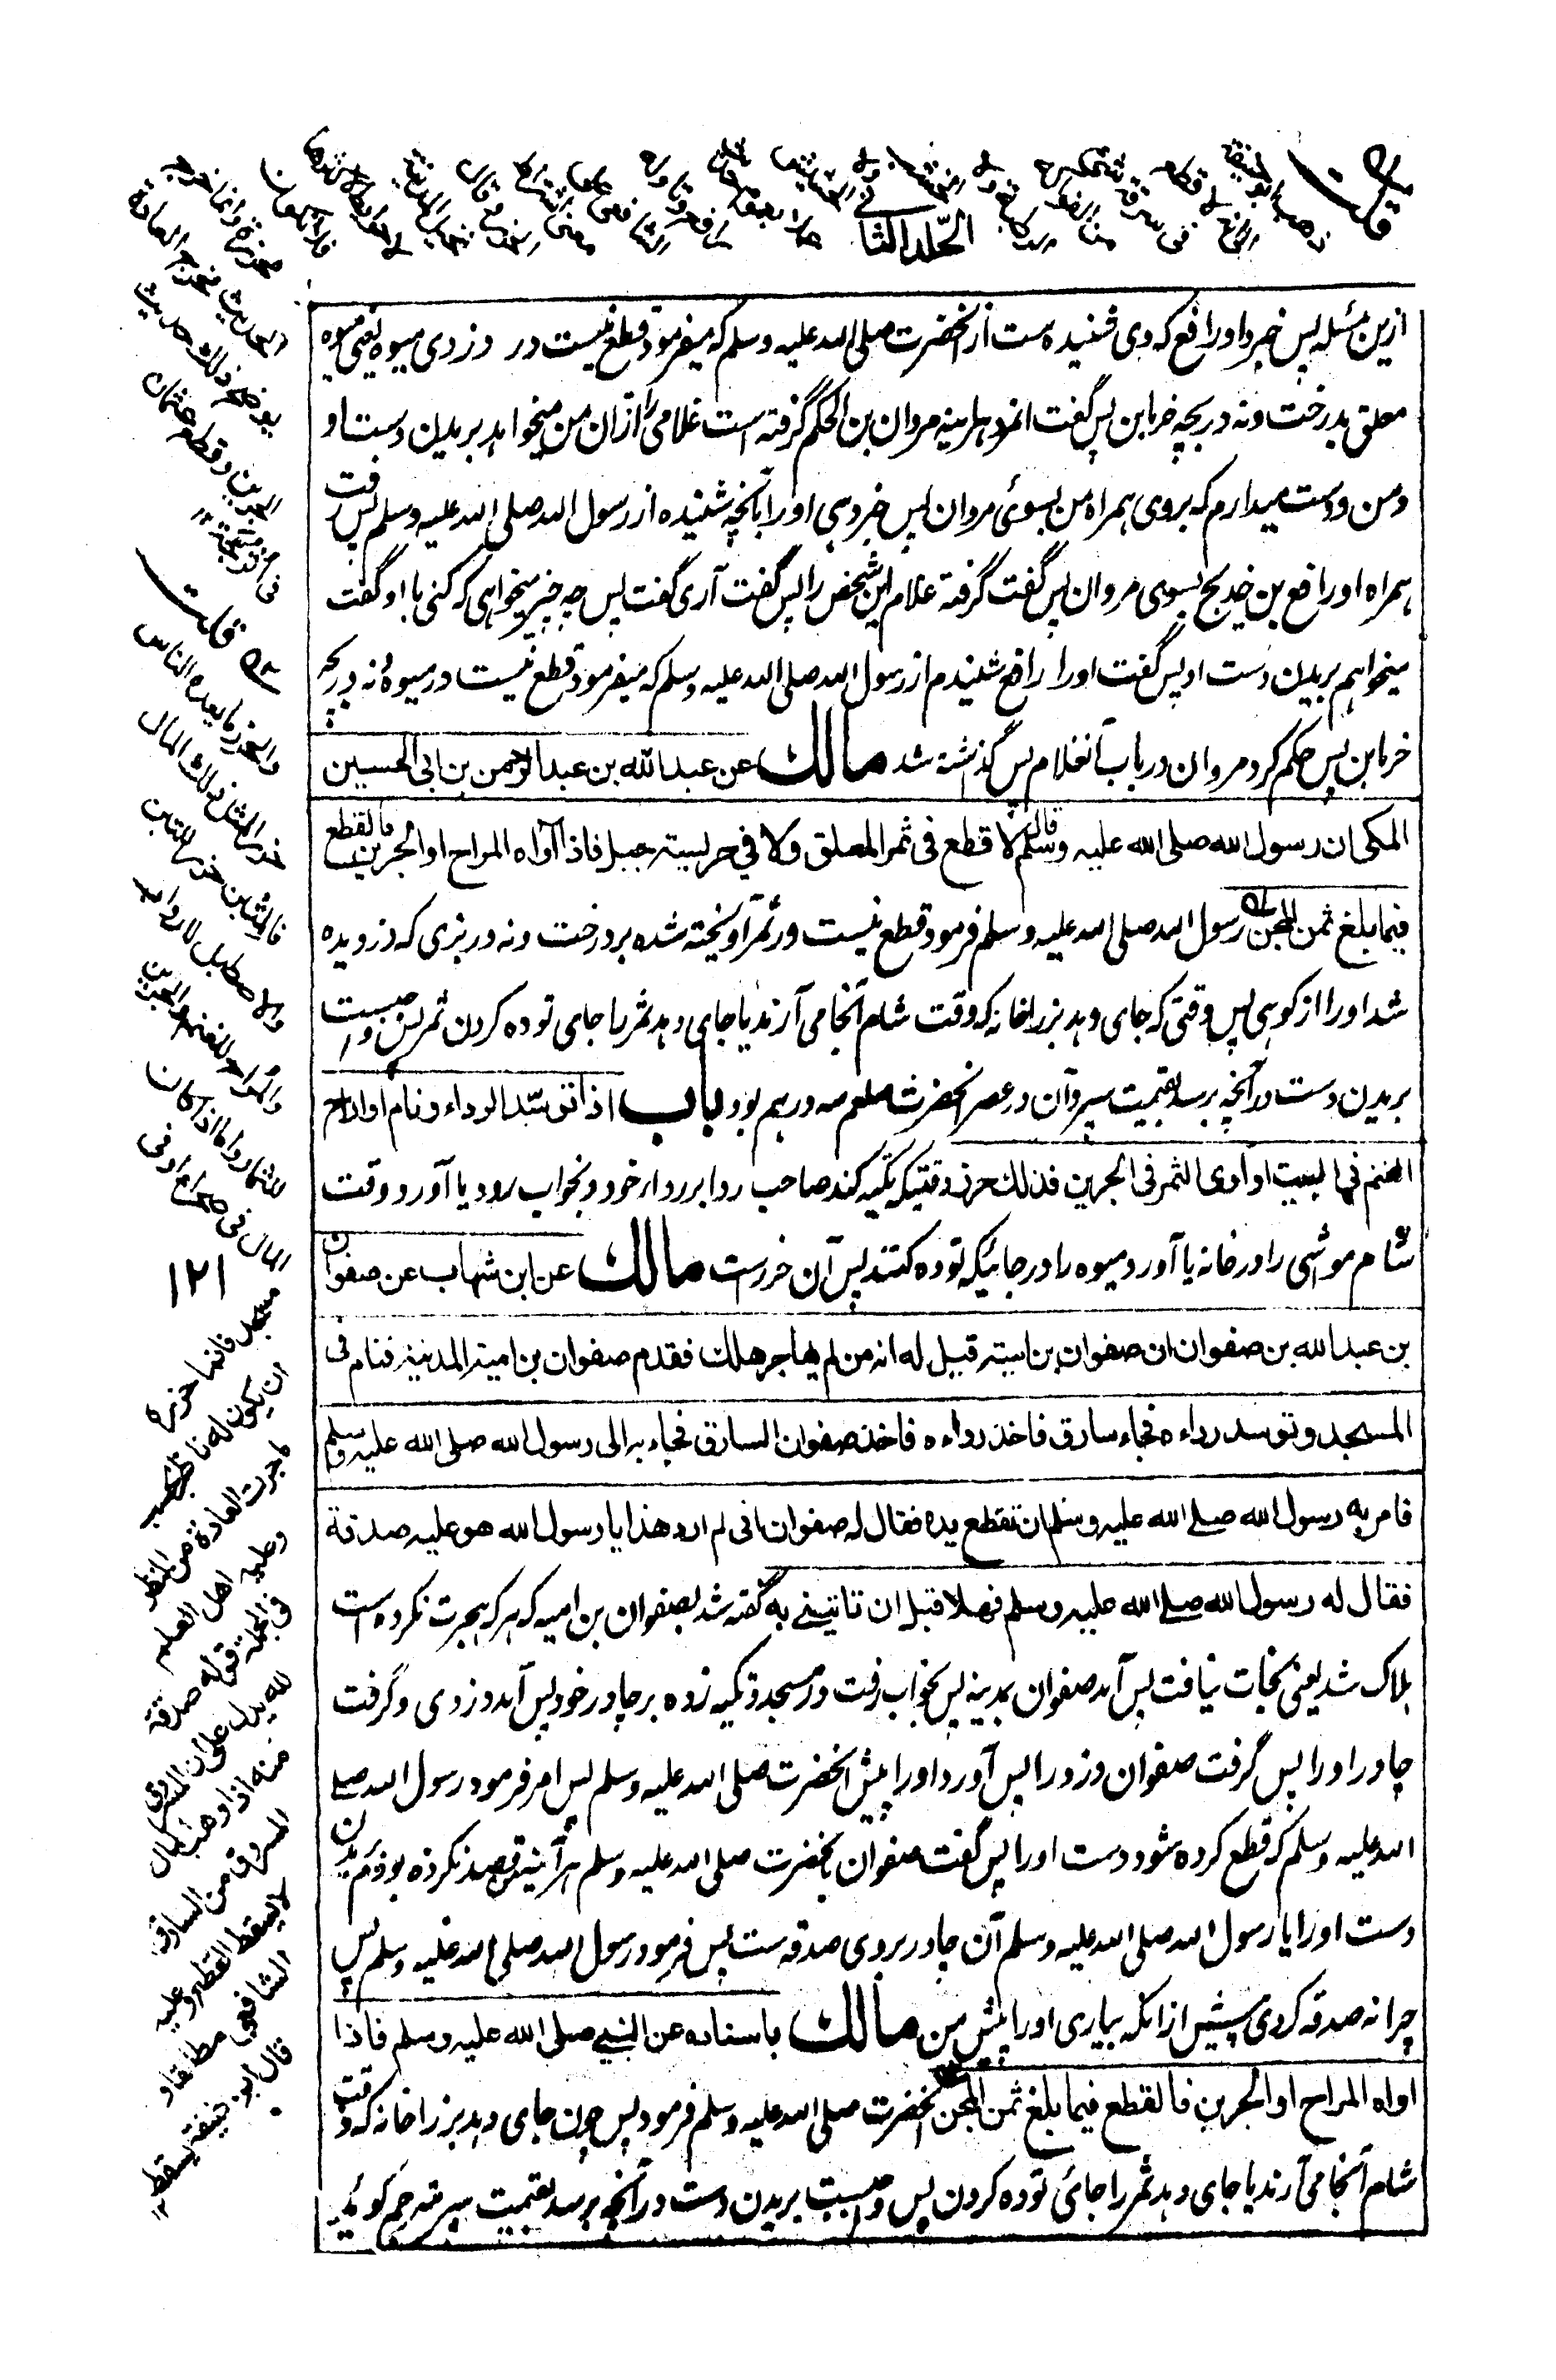 الجلد الثانی
ازین مسئله پس خبر داد او را رافع که وی شنیده ست از آنحضرت صلی الله علیه وسلم که میفرمود قطع نیست در دزدی میوه یعنی میوه
معلق بدرخت ونه دریچه خرمابن پس گفت انمرد هر اینه مروان بن الحکم گرفته است غلامی را از ان من میخواهد بریدن دست او
ومن دوست میدارم که بروی همراه من بسوئی مروان پس خبر دهی او را بآنچه شنیده از رسول الله صلی الله علیه وسلم پس رفت
همراه او رافع بن خدیج بسوی مروان پس گفت گرفته غلام این شخص را پس گفت آری گفت پس چه چیز میخواهی که کنی با او گفت
میخواهم بریدن دست او پس گفت او را رافع شنیدم از رسول الله صلی الله علیه وسلم که میفرمود قطع نیست در میوه ونه دریچه
خرمابن پس حکم کرد مروان در باب آنغلام پس گذاشته شد مالك عن عبد الله بن عبد الرحمن بن ابی الحسین
المکی ان رسول الله صلی الله علیه وسلم قال لا قطع فی ثمر المعلق ولا فی حریسة جبل فاذا آواه المراح او الجرین فالقطع
فیما بلغ ثمن المجن رسول الله صلی الله علیه وسلم فرمود قطع نیست در ثمر آویخته شده بر درخت ونه در بزی که دزدیده
شد او را از کوهی پس وقتی که جای دهد بز را خانه که وقت شام آنجا می آرند یا جای دهد ثمر را جای توده کردن ثمر پس واجبست
بریدن دست در آنچه برسد بقیمت سپر وآن در عصر آنحضرت صلعم سه درهم بود باب اذا توسد الرداء ونام او اراح
الغنم فی البیت او آوی الثمر فی الجرین فذلك حرز وقتیکه تکیه کند صاحب ردا بر ردا خود و بخواب رود یا آورد وقت
شام مواشی را در خانه یا آورد میوه را در جائیکه توده کنند پس آن حرز ست مالك عن ابن شهاب عن صفوان
بن عبد الله بن صفوان ان صفوان بن امیة قیل له انه من لم یهاجر هلك فقدم صفوان بن امیة المدینة فنام فی
المسجد وتوسد رداءه فجاء سارق فاخذ رداءه فاخذ صفوان السارق فجاء به الی رسول الله صلی الله علیه وسلم
فامر به رسول الله صلے الله علیه وسلم ان تقطع یده فقال له صفوان انی لم ارد هذا یا رسول الله هو علیه صدقة
فقال له رسول الله صلے الله علیه وسلم فهلا قبل ان تاتینے به گفته شد بصفوان بن امیه که هر که هجرت نکرده است
هلاک شد یعنی نجات نیافت پس آمد صفوان بمدینه پس بخواب رفت در مسجد و تکیه زده بر چادر خود پس آمد دزدی و گرفت
چادر او را پس گرفت صفوان دزد را پس آورد او را پیش آنحضرت صلی الله علیه وسلم پس امر فرمود رسول الله صلے
الله علیه وسلم که قطع کرده شود دست او را پس گفت صفوان بآنحضرت صلی الله علیه وسلم هر آئینه قصد نکرده بودم بریدن
دست او را یا رسول الله صلی الله علیه وسلم آن چادر بر وی صدقه ست پس فرمود رسول الله صلی الله علیه وسلم پس
چرا نه صدقه کردی پیشتر ازانکه بیاری او را پیش من مالك باسناده عن النبی صلی الله علیه وسلم فاذا
اواه المراح او الجرین فالقطع فیما بلغ ثمن المجن آنحضرت صلی الله علیه وسلم فرمود پس چون جای دهد بز را خانه که وقت
شام آنجا می آرند یا جای دهد ثمر را جائی توده کردن پس واجبست بریدن دست در آنچه برسد بقیمت سپر مترجم گوید
قلت
والحرز ما یعده الناس
حرز المثل ذلك المال
۱۲۱
مسجد فانما حرزه
ان یکون له ناظر بحسب
ما جرت العادة من النظر
وعلیه اهل العلم
فی الجملة قوله صدقة
لله یدل علی ان المسروق
منه اذا وهب المال
المسروق من السارق
لا یسقط القطع وعلیه
الشافعی مطلقا و
قال ابو حنیفة یسقط ۱۲